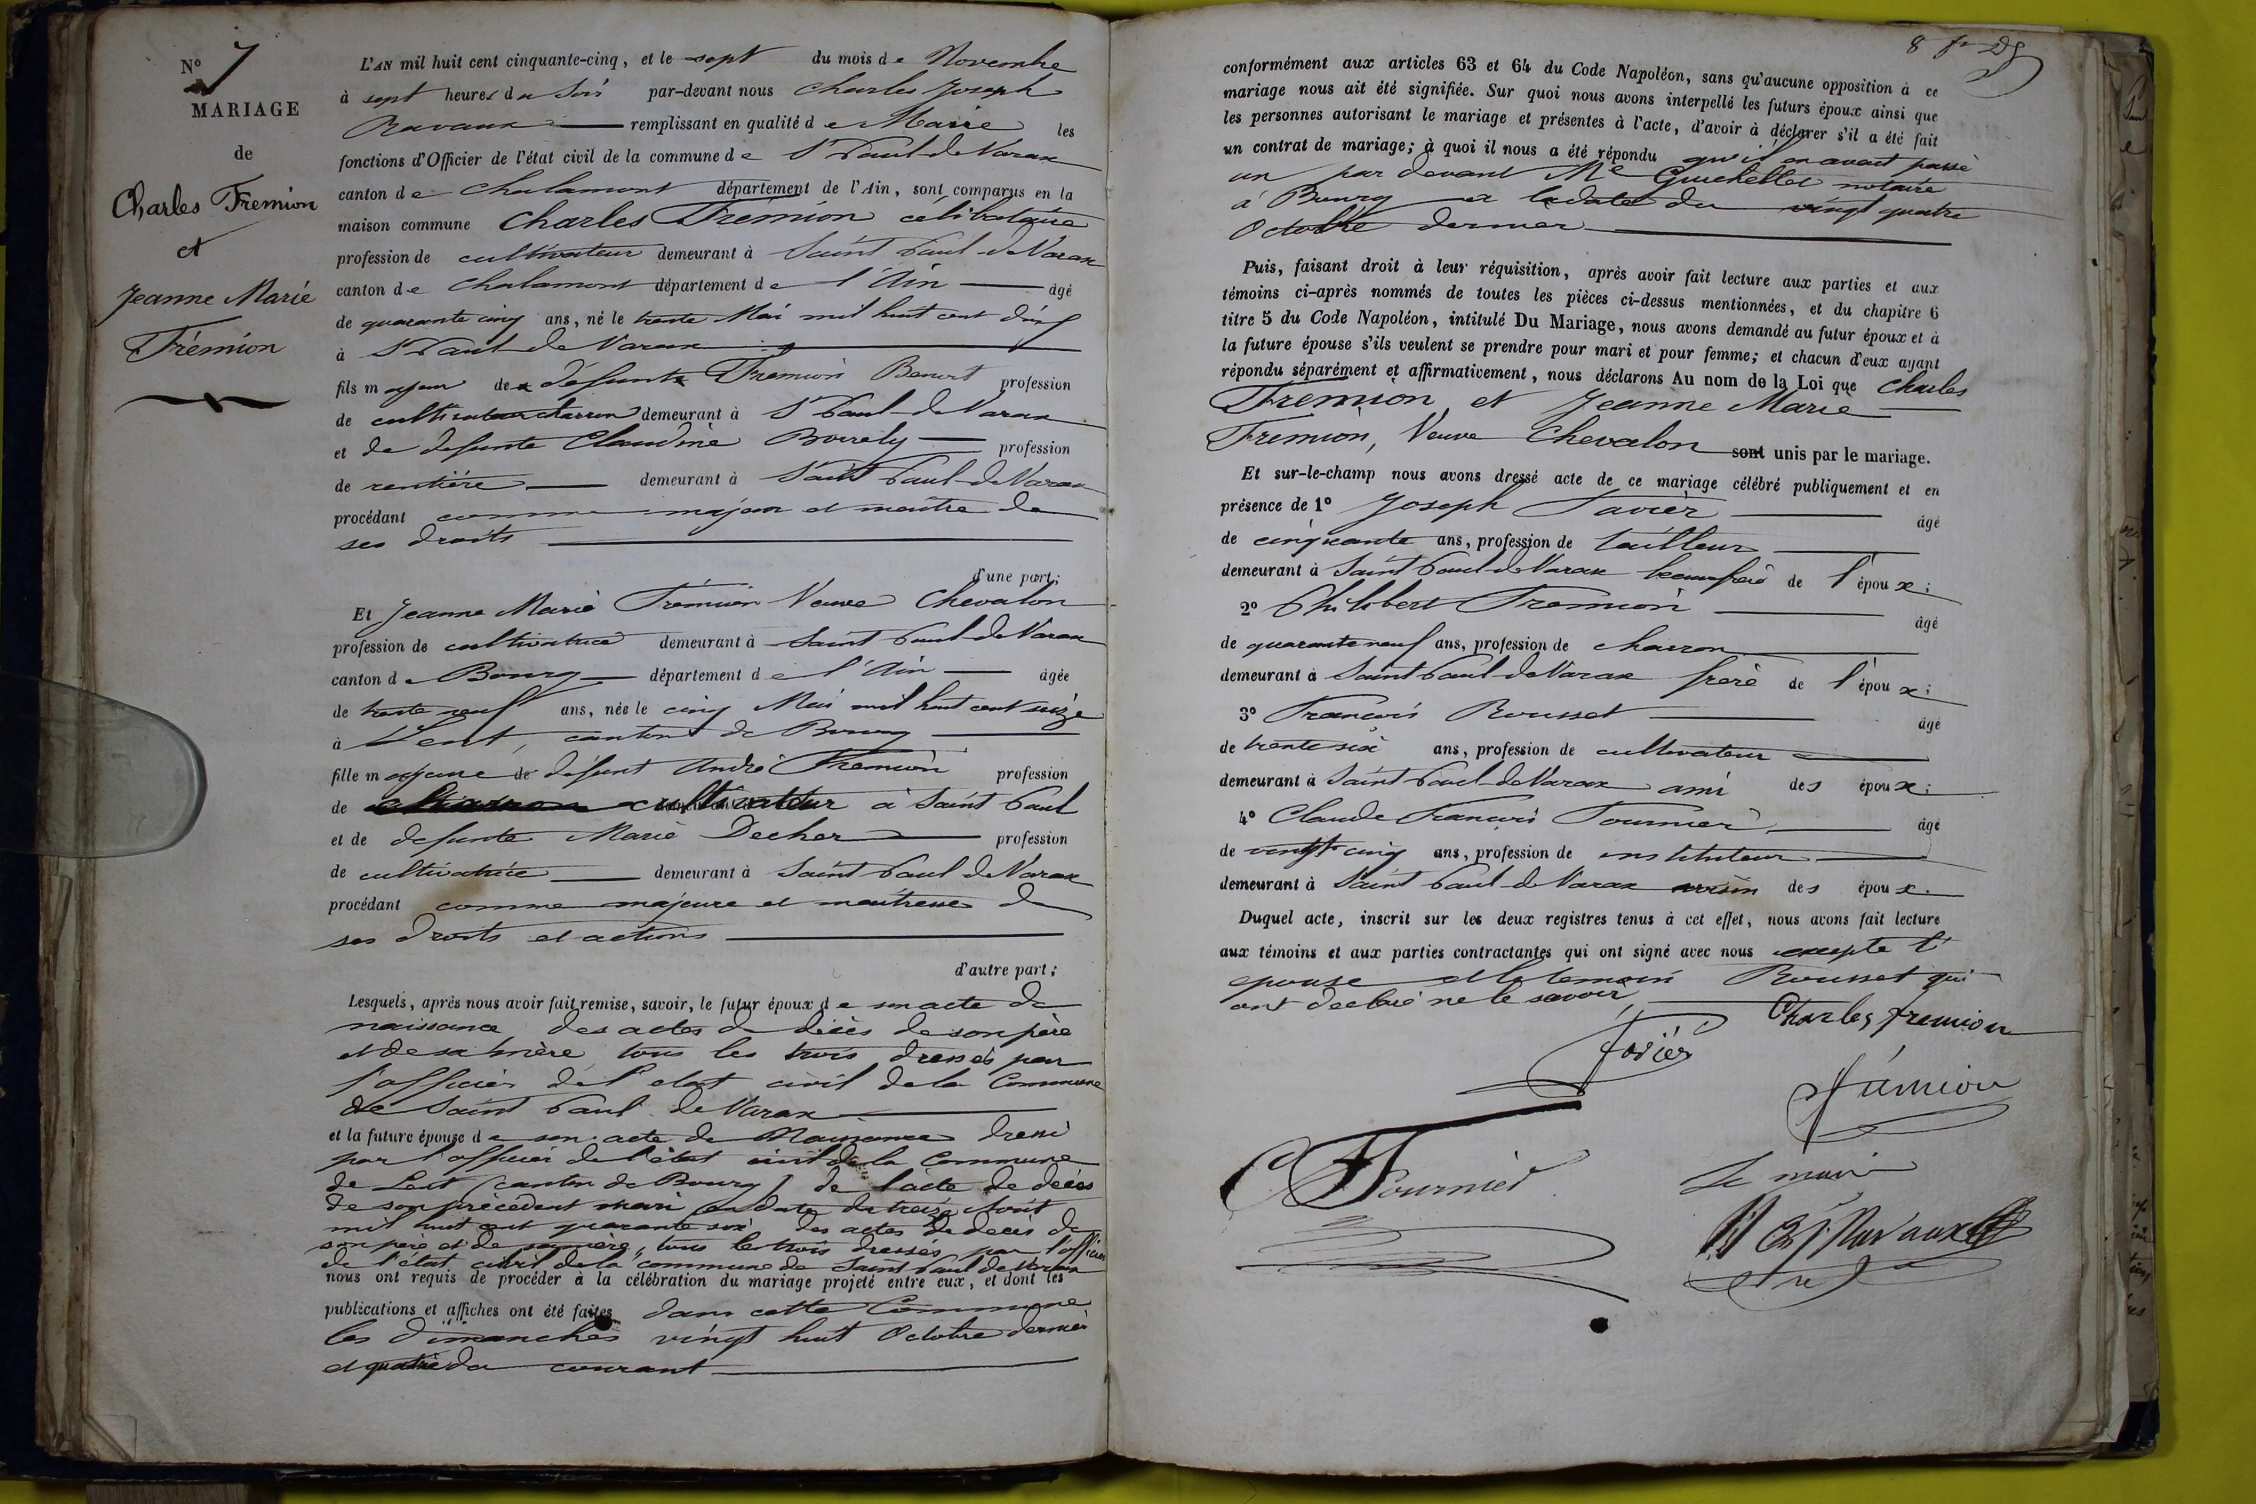 N° 7
MARIAGE
de
Charles Fremion
et
Jeanne Marie
Frémion
L'AN mil huit cent cinquante-cinq, et le sept du mois de Novembre
à sept heures du Soir par-devant nous Charles Joseph
Ravaux remplissant en qualité de Maire les
fonctions d'Officier de l'état civil de la commune de St Paul de Varax
canton de Chalamont département de l'Ain, sont comparus en la
maison commune Charles Frémion célibataire
profession de cultivateur demeurant à Saint Paul de Varax
canton de Chalamont département de l'Ain âgé
de quarante cinq ans, né le trente Mai mil huit cent dix
à St Paul de Varax
fils majeur de défunt Fremion Benoit profession
de charron demeurant à St Paul de Varax
et de defunte Claudine profession
de rentière demeurant à Saint Paul de Varax
procédant comme majeur et maitre de
ses droits
d'une part;
Et Jeanne Marie Frémion Veuve Chevalon
profession de cultivatrice demeurant à Saint Paul de Varax
canton de Bourg département de l'Ain âgée
de trente neuf ans, née le cinq Mai mil huit cent seize
à Lent, canton de Bourg
fille majeure de défunt André Fremion profession
de cultivateur à Saint Paul
et de defunte Marie Decher profession
de cultivatrice demeurant à Saint Paul de Varax
procédant comme majeure et maitresse de
ses droits et actions
d'autre part;
Lesquels, après nous avoir fait remise, savoir, le futur époux de son acte de
naissance des actes de décès de son père
et de sa mère tous les trois dressés par
l'officier de l'etat civil de la Commune
de Saint Paul de Varax
et la future épouse de son acte de Naissance dressé
par l'officier de l'état civil de la Commune
de Lent (canton de Bourg) de l'acte de décès
de son précédent mari en date du treize Août
mil huit cent quarante six des actes de décès de
son père et de sa mère, tous les trois dressés par l'officier
de l'état civil de la commune de Saint Paul de Varax
nous ont requis de procéder à la célébration du mariage projeté entre eux, et dont les
publications et affiches ont été faites dans cette Commune
les dimanches vingt huit Octobre dernier
et quatre du courant
8
conformément aux articles 63 et 64 du Code Napoléon, sans qu'aucune opposition à ce
mariage nous ait été signifiée. Sur quoi nous avons interpellé les futurs époux ainsi que
les personnes autorisant le mariage et présentes à l'acte, d'avoir à déclarer s'il a été fait
un contrat de mariage; à quoi il nous a été répondu qu'il en avait passé
un par devant Me Guichellet notaire
à Bourg à la date du vingt quatre
Octobre dernier
Puis, faisant droit à leur réquisition, après avoir fait lecture aux parties et aux
témoins ci-après nommés de toutes les pièces ci-dessus mentionnées, et du chapitre 6
titre 5 du Code Napoléon, intitulé Du Mariage, nous avons demandé au futur époux et à
la future épouse s'ils veulent se prendre pour mari et pour femme; et chacun d'eux ayant
répondu séparément et affirmativement, nous déclarons Au nom de la Loi que Charles
Fremion et Jeanne Marie
Fremion, Veuve Chevalon sont unis par le mariage.
Et sur-le-champ nous avons dressé acte de ce mariage célébré publiquement et en
présence de 1° Joseph Javier âgé
de cinquante ans, profession de tailleur
demeurant à Saint Paul de Varax beaufrère de l'époux;
2° Philibert Fremion âgé
de quarante neuf ans, profession de charron
demeurant à Saint Paul de Varax frère de l'époux;
3° François Rousset âgé
de trente six ans, profession de cultivateur
demeurant à Saint Paul de Varax ami des époux;
4° Claude François Fournier âgé
de vingt cinq ans, profession de instituteur
demeurant à Saint Paul de Varax voisin des époux.
Duquel acte, inscrit sur les deux registres tenus à cet effet, nous avons fait lecture
aux témoins et aux parties contractantes qui ont signé avec nous excepté l'
epouse et le temoin Rousset qui
ont declaré ne le savoir
Charles fremion
Javier
frémion
CF Fournier
Le maire
Ch J. Ravaux